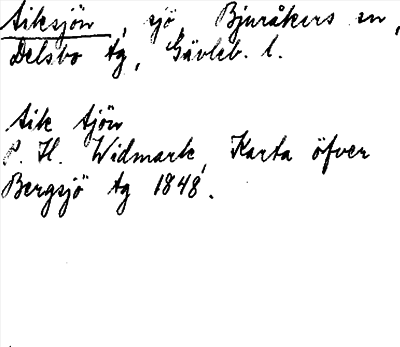 Aiksjön, sjö, Bjuråkers sn,
Delsbo tg, Gävleb. l.
Aik tjön
P. H. Widmark, Karta öfver
Bergsjö tg 1848.